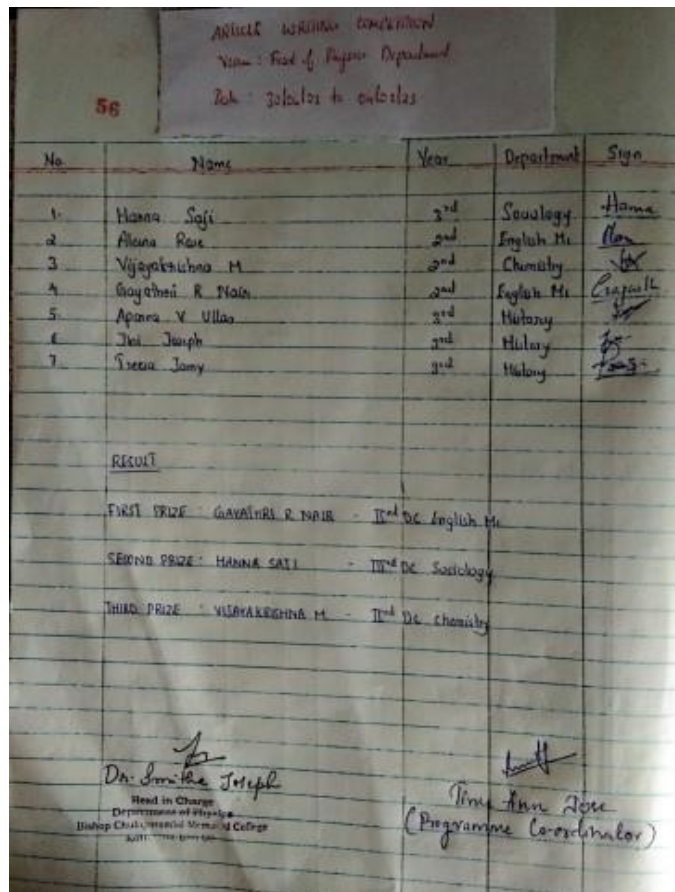 ARTICLE WRITING COMPETITION
Venue : Front of Physics Department
Date :
56
No. Name Year Department Sign
1. Hanna Saji 3rd Sociology Hanna
2 Aleena Rose 2nd English M1
3 Vijayakrishna M 2nd Chemistry
4 Gayathri R Nair 2nd English M1
5. Aparna V Ullas History
6 Joseph History
7 Treesa Jomy History
RESULT
FIRST PRIZE : GAYATHRI R NAIR - IInd DC English M1
SECOND PRIZE : HANNA SAJI - IIIrd DC Sociology
THIRD PRIZE : VIJAYAKRISHNA M - IInd DC Chemistry
Dr. Smitha Joseph
Head in Charge
Department of Physics
Bishop Memorial College
Ann Jose
(Programme Co-ordinator)